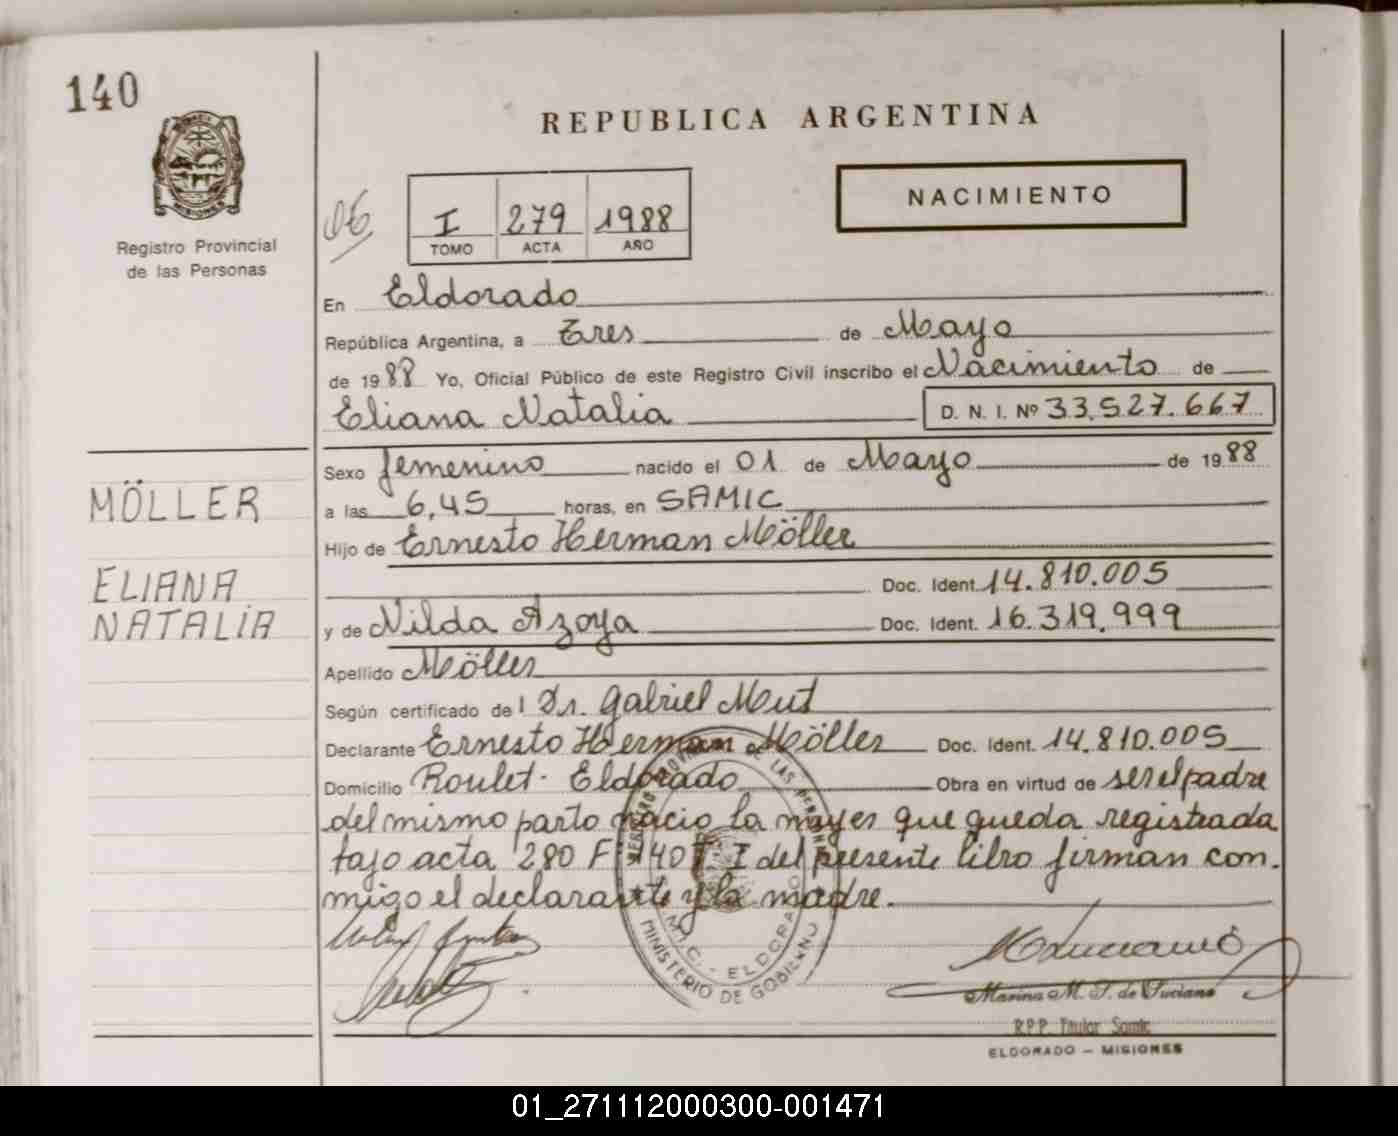 140
REPUBLICA ARGENTINA
NACIMIENTO
Registro Provincial
de las Personas
I 279 1988
TOMO ACTA AÑO
En Eldorado
República Argentina, a Tres de Mayo
de 1988 Yo, Oficial Público de este Registro Civil inscribo el Nacimiento de
Eliana Natalia D. N. I. Nº 33.527.667
Sexo femenino nacido el 01 de Mayo de 1988
MÖLLER
a las 6,45 horas, en SAMIC
Hijo de Ernesto Herman Möller
ELIANA
Doc. Ident. 14.810.005
NATALIA
y de Nilda Azoya Doc. Ident. 16.319.999
Apellido Möller
Según certificado de l Dr. Gabriel Mut
Declarante Ernesto Herman Möller Doc. Ident. 14.810.005
Domicilio Roulet - Eldorado Obra en virtud de ser el padre
del mismo parto nacio la mayer que queda registrada
bajo acta 280 F 140 T. I del presente libro firman con.
migo el declarante y la madre.
M.I.C. - ELDORADO
MINISTERIO DE GOBIERNO
Marina M. S. de Luciano
R.P.P. Titular Samic
ELDORADO - MISIONES
01_271112000300-001471